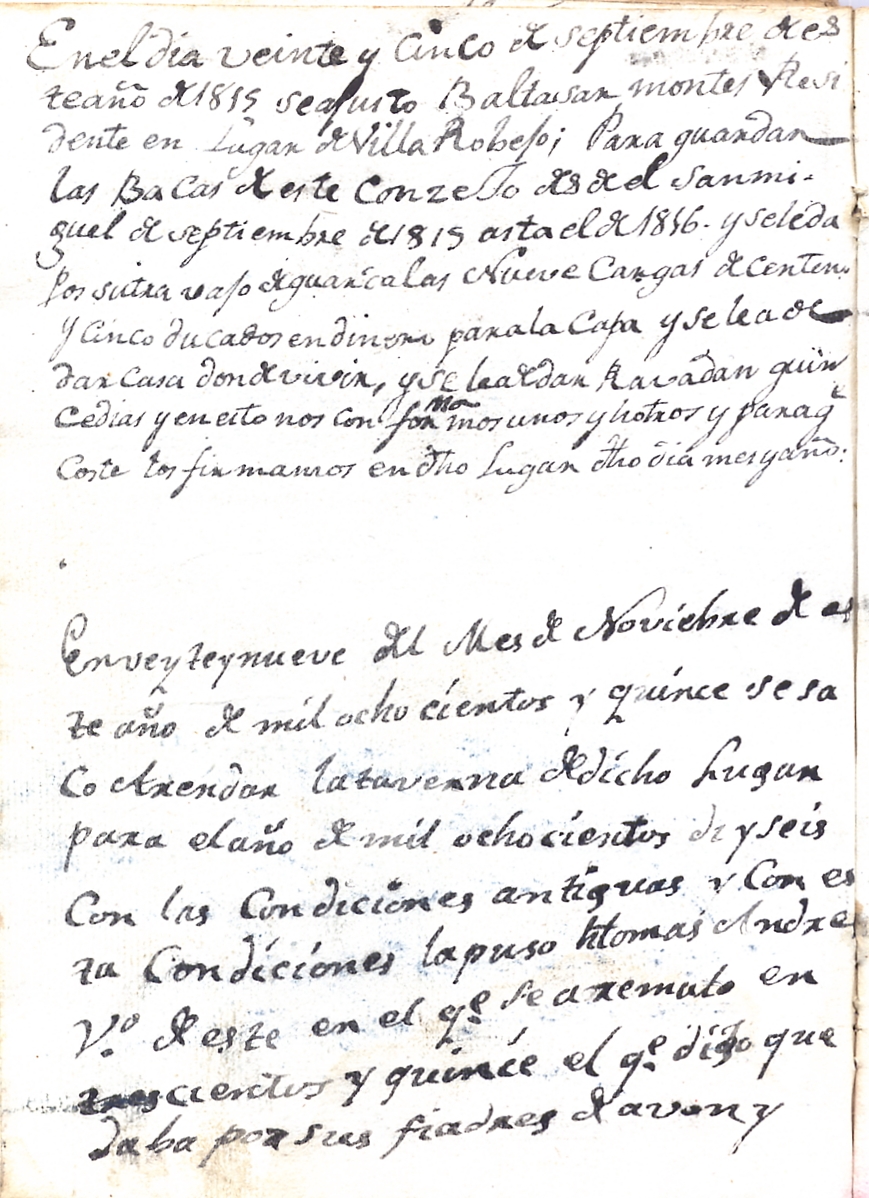 En el dia veinte y cinco de septiembre de es
te año de 1815 se ajusto Baltasar montes Resi
dente en Lugar de Villa Robejo; Para guardar
las Bacas de este Conzejo desde el sanmi-
guel de septiembre de 1815 asta el de 1816. y se le da
Por su travajo de guardalas Nueve Cargas de Centen.
y Cinco ducados en dinero para la Casa y se le a de
dar Casa donde vivir, y se le a de dar quin
ce dias y en esto nos con for ma mos unos y hotros y para q.e
Coste los firmamos en dho Lugar dho dia mes y año:
En veyte y nueve del Mes de Noviebre de es
te año de mil ocho cientos y quince se sa
Co Arendar la taverna de dicho Lugar
para el año de mil ochocientos di y seis
Con las Condiciones antiguas y Con es
ta Condiciones la puso htomas Andres
V.o de este en el q.e se aremato en
trescientos y quince el q.e digo que
daba por sus fiadres de avon y